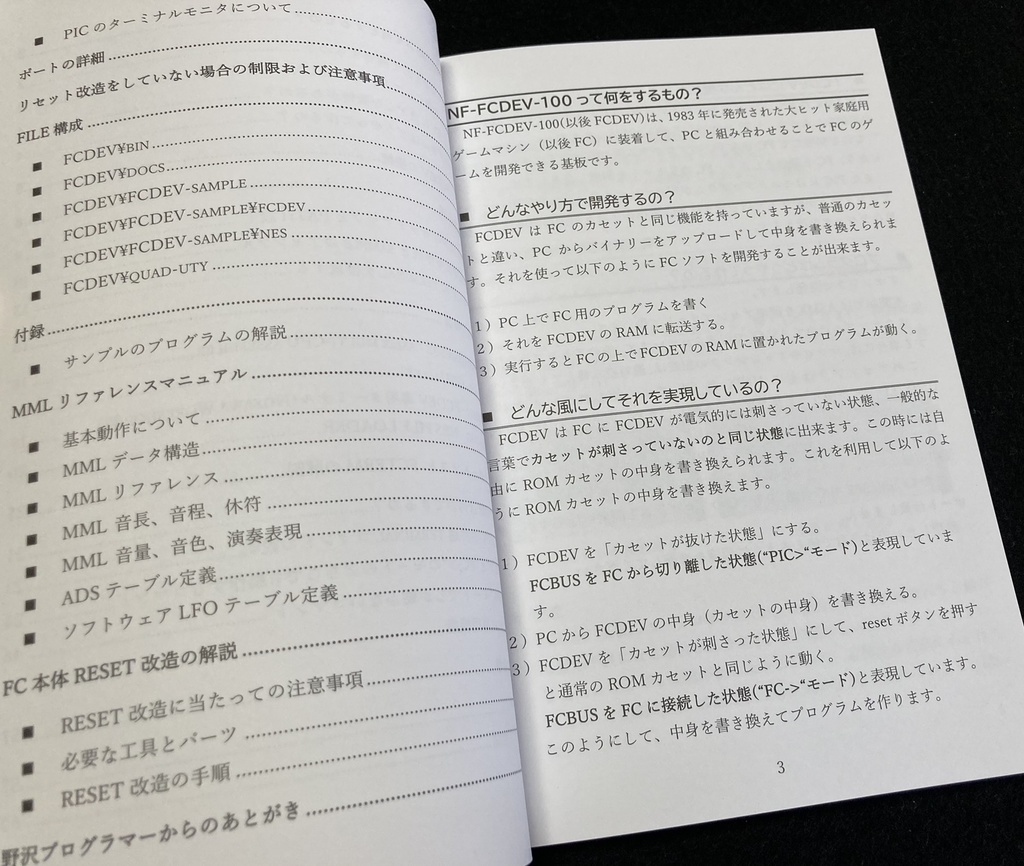 ■ PIC のターミナルモニタについて
ポートの詳細
リセット改造をしていない場合の制限および注意事項
FILE 構成
■ FCDEV¥BIN
■ FCDEV¥DOCS
■ FCDEV¥FCDEV-SAMPLE
■ FCDEV¥FCDEV-SAMPLE¥FCDEV
■ FCDEV¥FCDEV-SAMPLE¥NES
■ FCDEV¥QUAD-UTY
付録
■ サンプルのプログラムの解説
MML リファレンスマニュアル
■ 基本動作について
■ MML データ構造
■ MML リファレンス
■ MML 音長、音程、休符
■ MML 音量、音色、演奏表現
■ ADS テーブル定義
■ ソフトウェア LFO テーブル定義
FC 本体 RESET 改造の解説
■ RESET 改造に当たっての注意事項
■ 必要な工具とパーツ
■ RESET 改造の手順
野沢プログラマーからのあとがき
NF-FCDEV-100 って何をするもの？
NF-FCDEV-100(以後 FCDEV)は、1983 年に発売された大ヒット家庭用
ゲームマシン（以後 FC）に装着して、PC と組み合わせることで FC のゲ
ームを開発できる基板です。
■ どんなやり方で開発するの？
FCDEV は FC のカセットと同じ機能を持っていますが、普通のカセッ
トと違い、PC からバイナリーをアップロードして中身を書き換えられま
す。それを使って以下のように FC ソフトを開発することが出来ます。
1）PC 上で FC 用のプログラムを書く
2）それを FCDEV の RAM に転送する。
3）実行すると FC の上で FCDEV の RAM に置かれたプログラムが動く。
■ どんな風にしてそれを実現しているの？
FCDEV は FC に FCDEV が電気的には刺さっていない状態、一般的な
言葉でカセットが刺さっていないのと同じ状態に出来ます。この時には自
由に ROM カセットの中身を書き換えられます。これを利用して以下のよ
うに ROM カセットの中身を書き換えます。
1）FCDEV を「カセットが抜けた状態」にする。
FCBUS を FC から切り離した状態(“PIC>“モード)と表現していま
す。
2）PC から FCDEV の中身（カセットの中身）を書き換える。
3）FCDEV を「カセットが刺さった状態」にして、reset ボタンを押す
と通常の ROM カセットと同じように動く。
FCBUS を FC に接続した状態(“FC->“モード)と表現しています。
このようにして、中身を書き換えてプログラムを作ります。
3